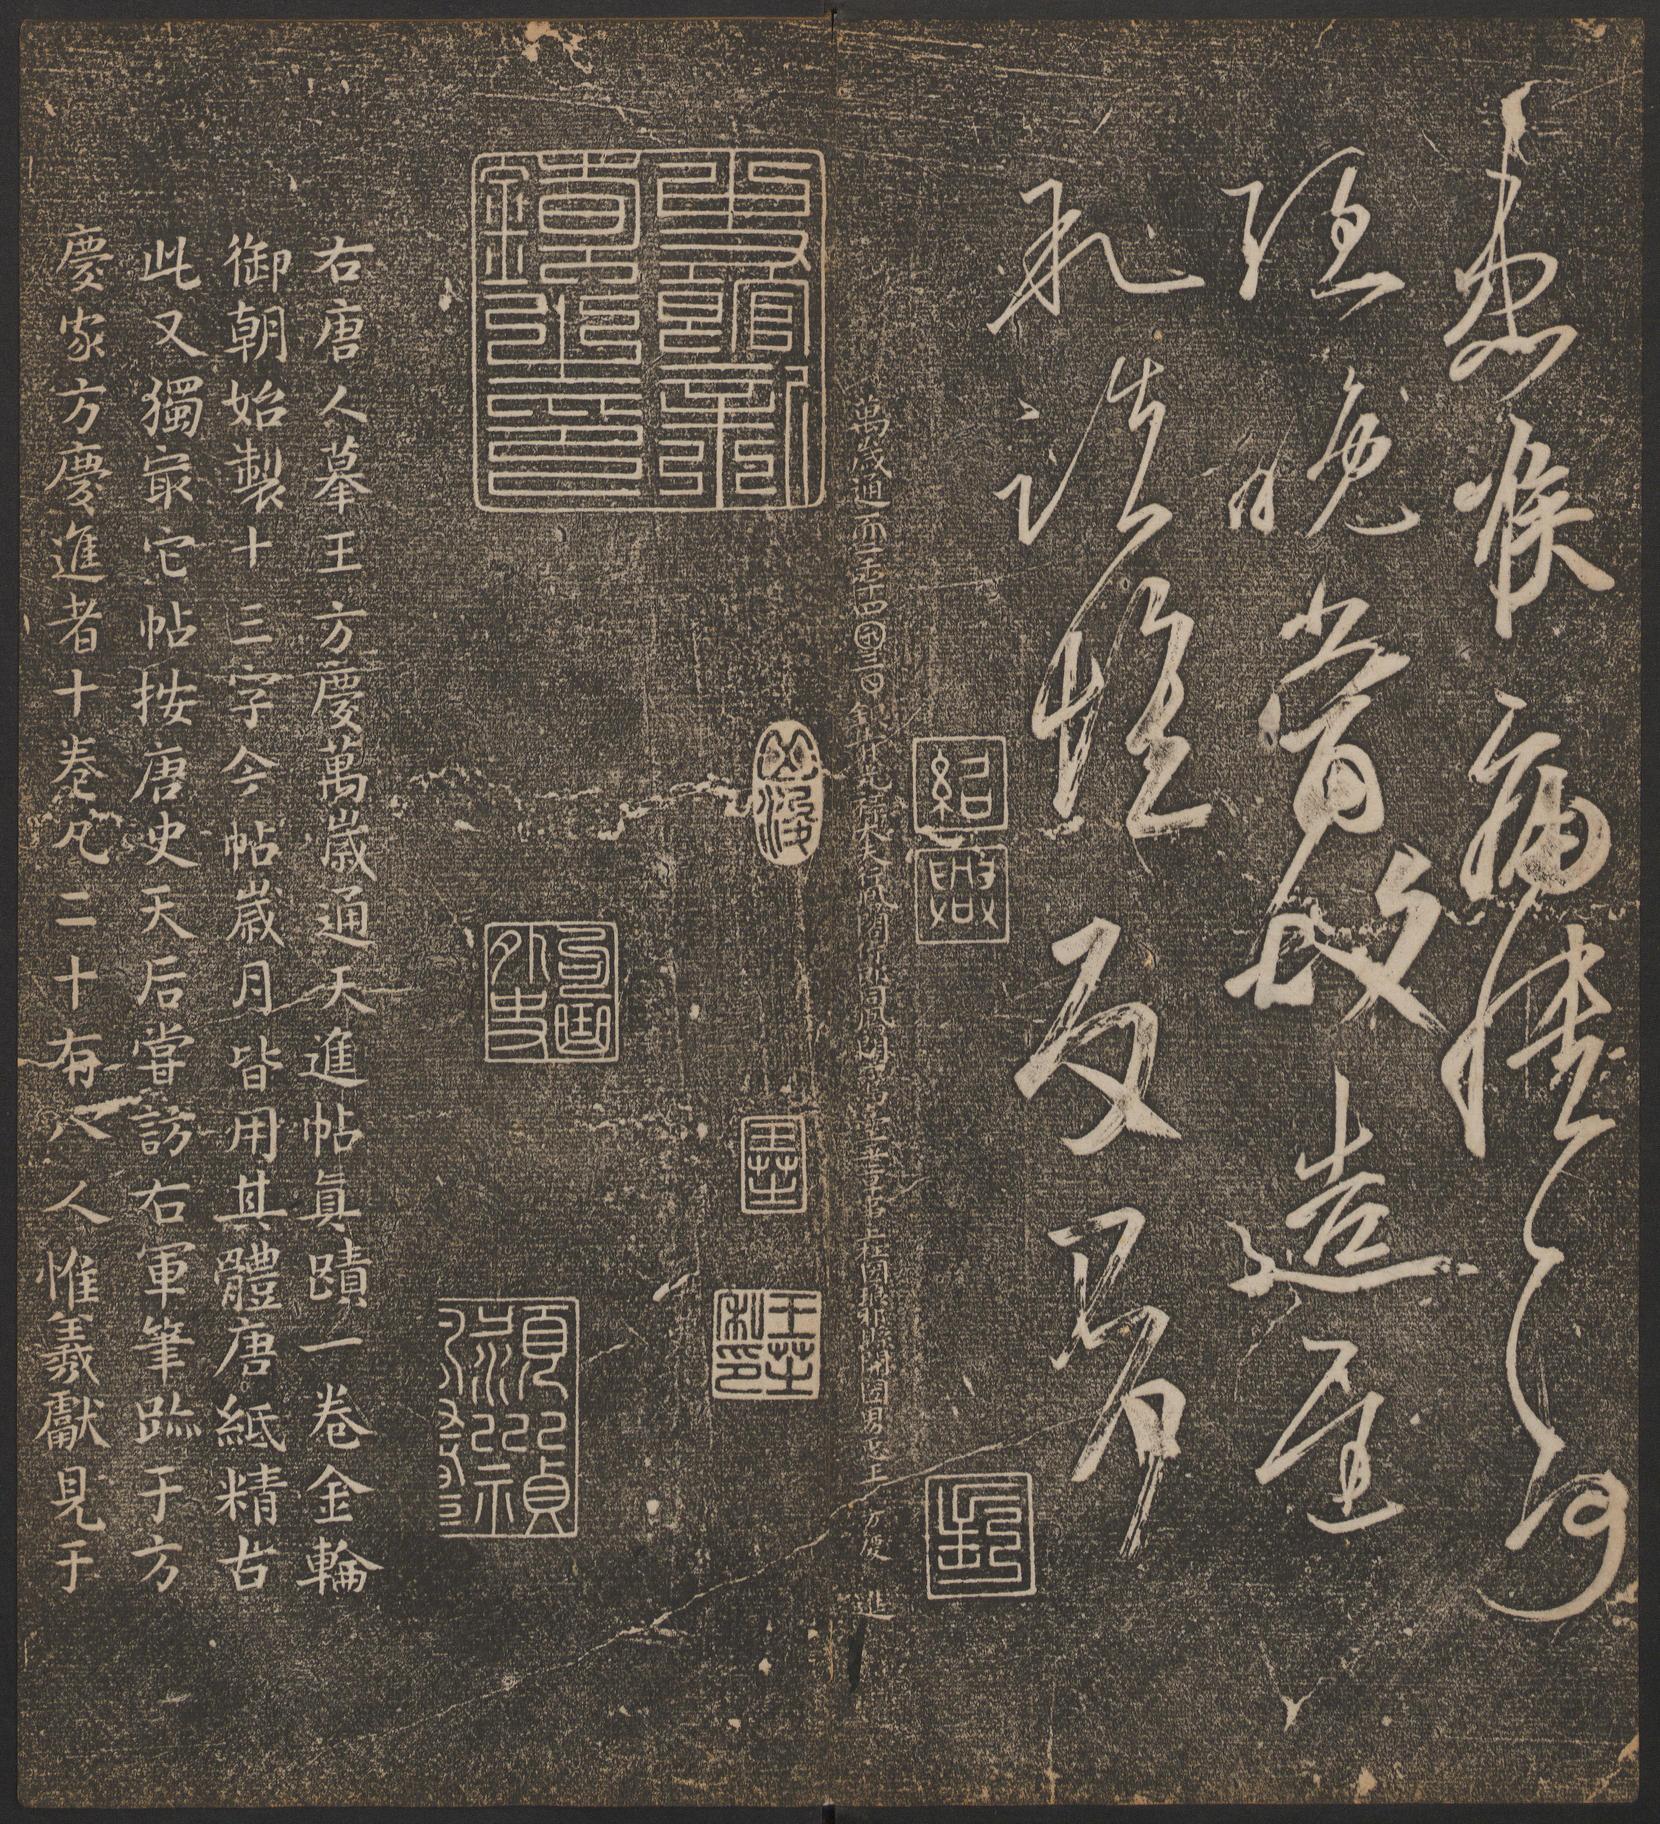 患喉痛憒憒何
強晚當故造遲
敘諸惟反
紹興
萬歲通天二年四月三日銀青光祿大夫行鳳閣侍郎同鳳閣鸞臺平章事上柱國琅耶縣開國男臣王方慶進
史館新鑄之印
右唐人摹王方慶萬歲通天進帖眞蹟一卷金輪
御朝始製十三字今帖歲月皆用其體唐紙精古
此又獨冣它帖按唐史天后嘗訪右軍筆跡于方
慶家方慶進者十卷凡二十有八人惟羲獻見于